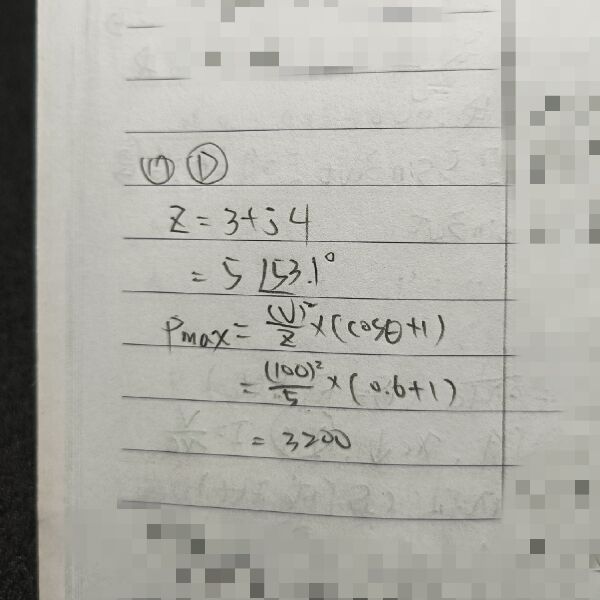 (17) ①
Z = 3+j4
= 5∠53.1°
Pmax = (V)²/Z × (cosθ+1)
= (100)²/5 × (0.6+1)
= 3200